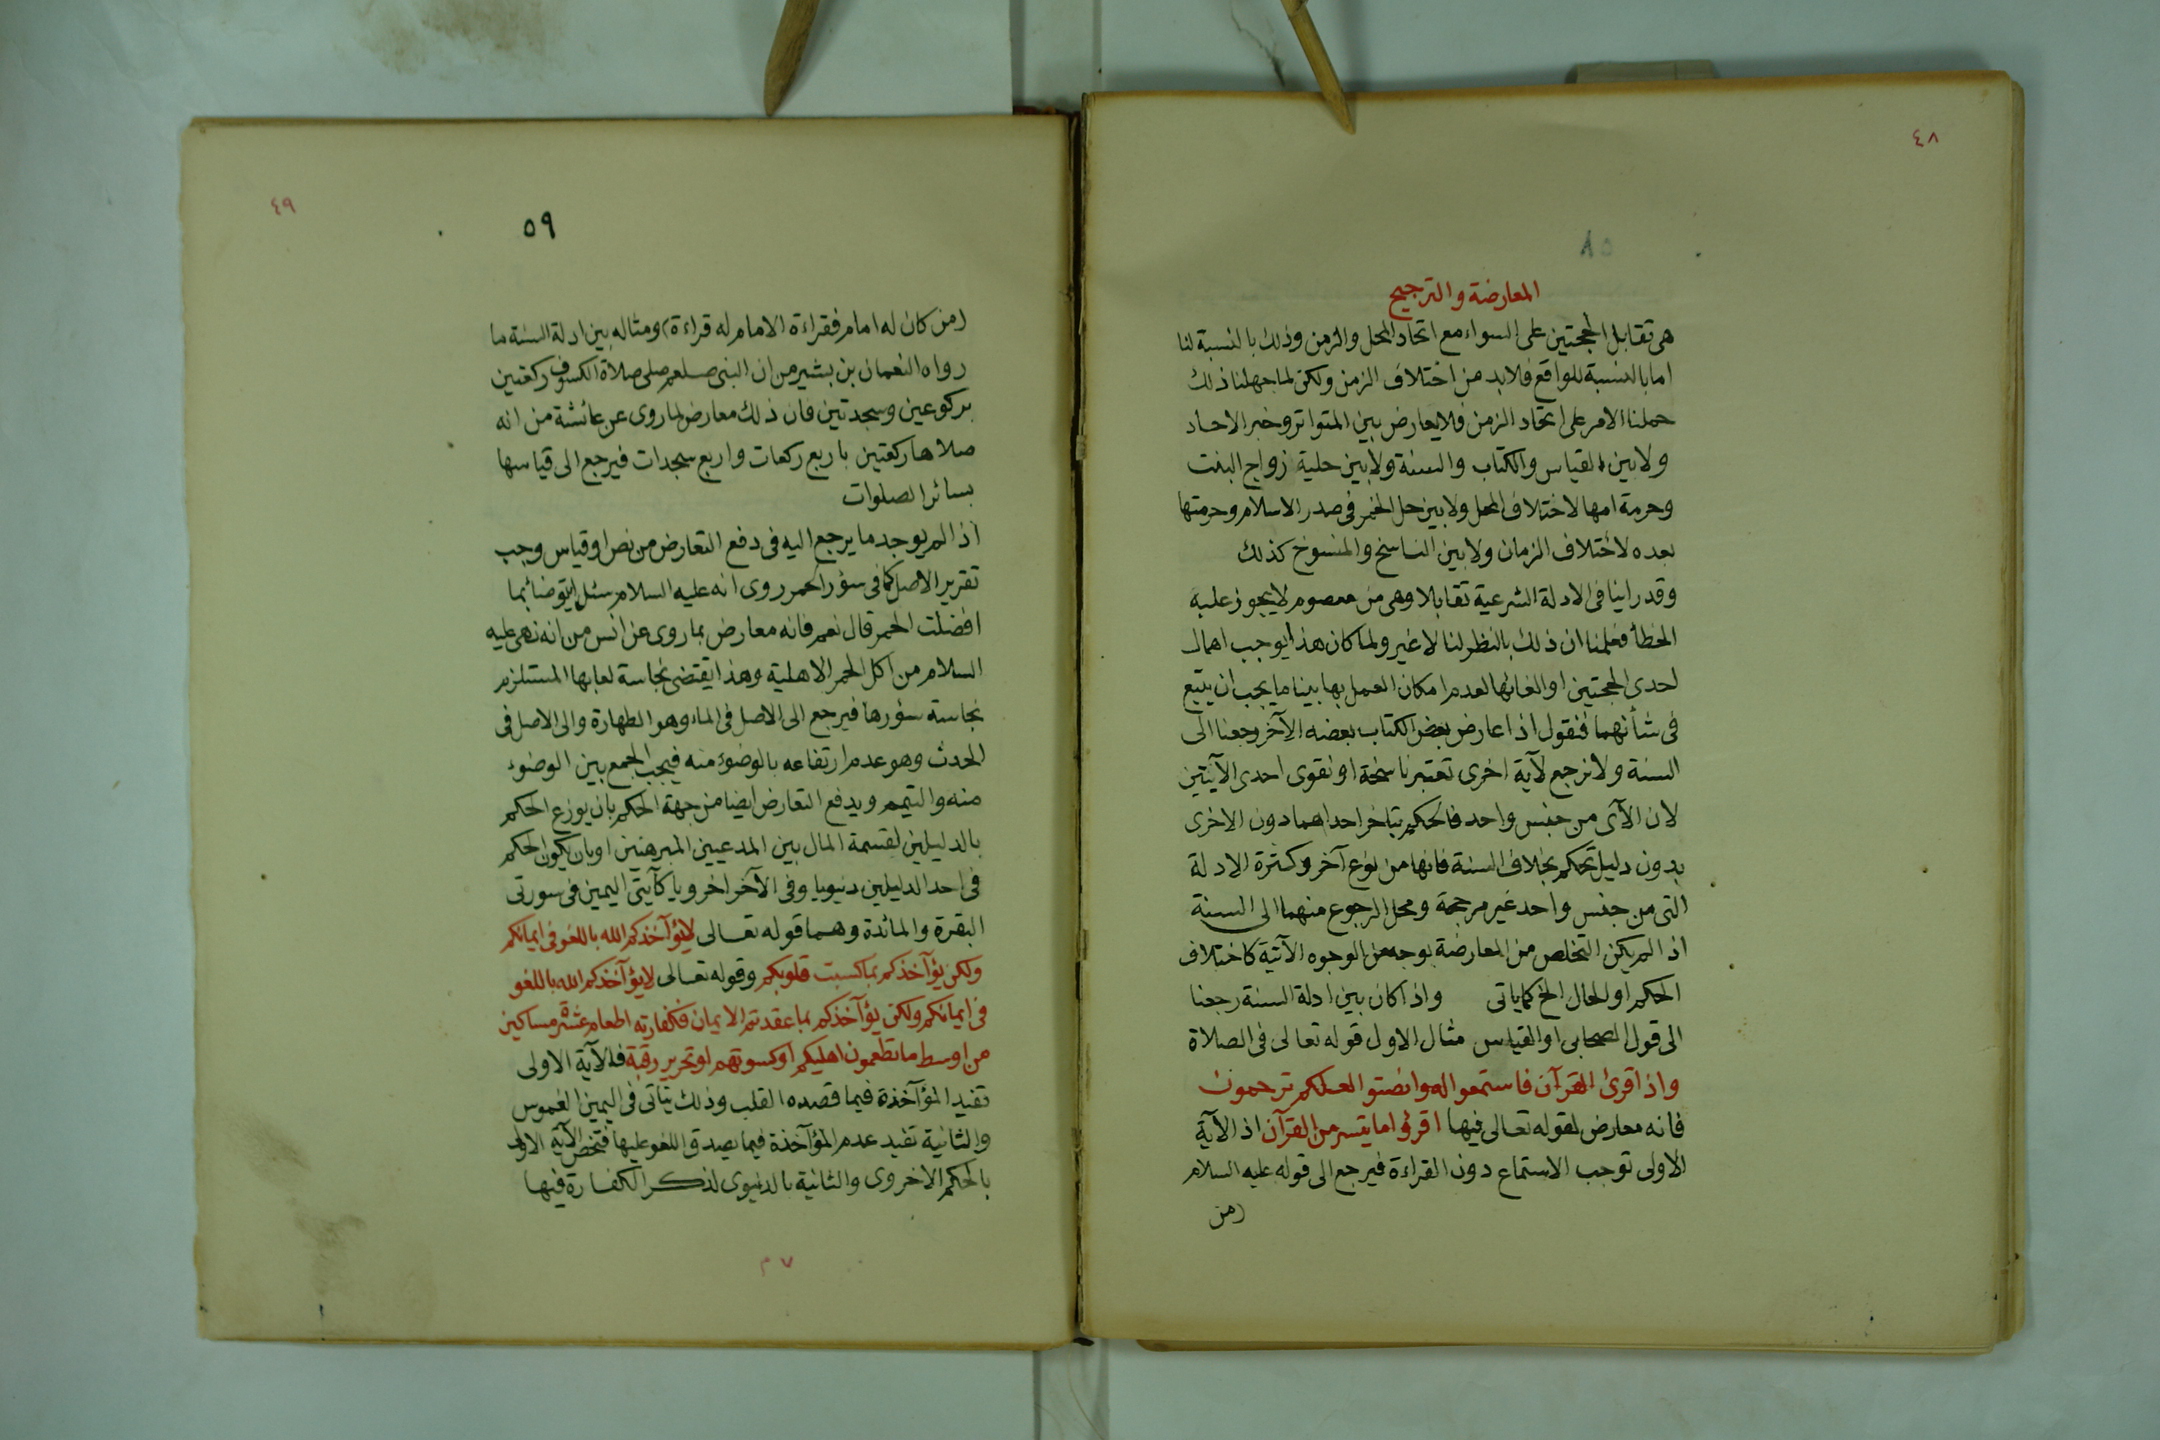 ٤٨
٥٨
المعارضة والترجيح
هى تقابل الحجتين على السواء مع اتحاد المحل والزمن وذلك بالنسبة لنا
اما بالنسبة للواقع فلابد من اختلاف الزمن ولكن لما جهلنا ذلك
حملنا الامر على اتحاد الزمن فلا يعارض بين المتواتر وخبر الاحاد
ولا بين القياس والكتاب والسنة ولا بين حلية زواج البنت
وحرمة امها لاختلاف المحل ولا بين حل الخمر فى صدر الاسلام وحرمتها
بعده لاختلاف الزمان ولا بين الناسخ والمنسوخ كذلك
وقد راينا فى الادلة الشرعية تقابلا وهى من معصوم لا يجوز عليه
الخطأ فعلمنا ان ذلك بالنظر لنا لا غير ولما كان هذا يوجب اهمال
احدى الحجتين او الغائها لعدم امكان العمل بها بينا ما يجب ان يتبع
فى شأنهما فنقول اذا عارض بعض الكتاب بعضه الآخر رجعنا الى
السنة ولا نرجع لآية اخرى تعتبر ناسخة او تقوى احدى الآيتين
لان الآى من جنس واحد فالحكم بتاخر احداهما دون الاخرى
بدون دليل تحكم بخلاف السنة فانها من نوع آخر وكثرة الادلة
التى من جنس واحد غير مرجحة ومحل الرجوع منهما الى السنة
اذا لم يكن التخلص من المعارضة بوجه من الوجوه الآتية كاختلاف
الحكم او الحال الخ كما ياتى واذا كان بين ادلة السنة رجعنا
الى قول الصحابى او القياس مثال الاول قوله تعالى فى الصلاة
واذا قرئ القرآن فاستمعوا له وانصتوا لعلكم ترحمون
فانه معارض لقوله تعالى فيها اقرؤا ما يتسر من القرآن اذ الآية
الاولى توجب الاستماع دون القراءة فيرجع الى قوله عليه السلام
(من
٤٩
٥٩
(من كان له امام فقراءة الامام له قراءة) ومثاله بين ادلة السنة ما
رواه النعمان بن بشير من ان النبى صلعم صلى صلاة الكسوف ركعتين
بركوعين وسجدتين فان ذلك معارض لما روى عن عائشة من انه
صلاها ركعتين باربع ركعات واربع سجدات فيرجع الى قياسها
بسائر الصلوات
اذا لم يوجد ما يرجع اليه فى دفع التعارض من نص او قياس وجب
تقرير الاصل كما فى سؤر الحمر روى انه عليه السلام سئل ايتوضأ بما
افضلت الحمر قال نعم فانه معارض بما روى عن انس من انه نهى عليه
السلام من اكل الحمر الاهلية وهذا يقتضى نجاسة لعابها المستلزم
نجاسة سؤرها فيرجع الى الاصل فى الماء وهو الطهارة والى الاصل فى
الحدث وهو عدم ارتفاعه بالوضوء منه فيجب الجمع بين الوضوء
منه والتيمم ويدفع التعارض ايضا من جهة الحكم بان يوزع الحكم
بالدليلين لقسمة المال بين المدعيين المبرهنين او بان يكون الحكم
فى احد الدليلين دنيويا وفى الآخر اخرويا كآيتى اليمين فى سورتى
البقرة والمائدة وهما قوله تعالى لا يؤآخذكم الله باللغو فى ايمانكم
ولكن يؤآخذكم بما كسبت قلوبكم وقوله تعالى لا يؤآخذكم الله باللغو
فى ايمانكم ولكن يؤآخذكم بما عقدتم الايمان فكفارته اطعام عشرة مساكين
من اوسط ما تطعمون اهليكم او كسوتهم او تحرير رقبة فالآية الاولى
تفيد المؤآخذة فيما قصده القلب وذلك يتأتى فى اليمين الغموس
والثانية تفيد عدم المؤآخذة فيما يصدق اللغو عليها فتخص الآية الاولى
بالحكم الاخروى والثانية بالدنيوى لذكر الكفارة فيها
٧ م